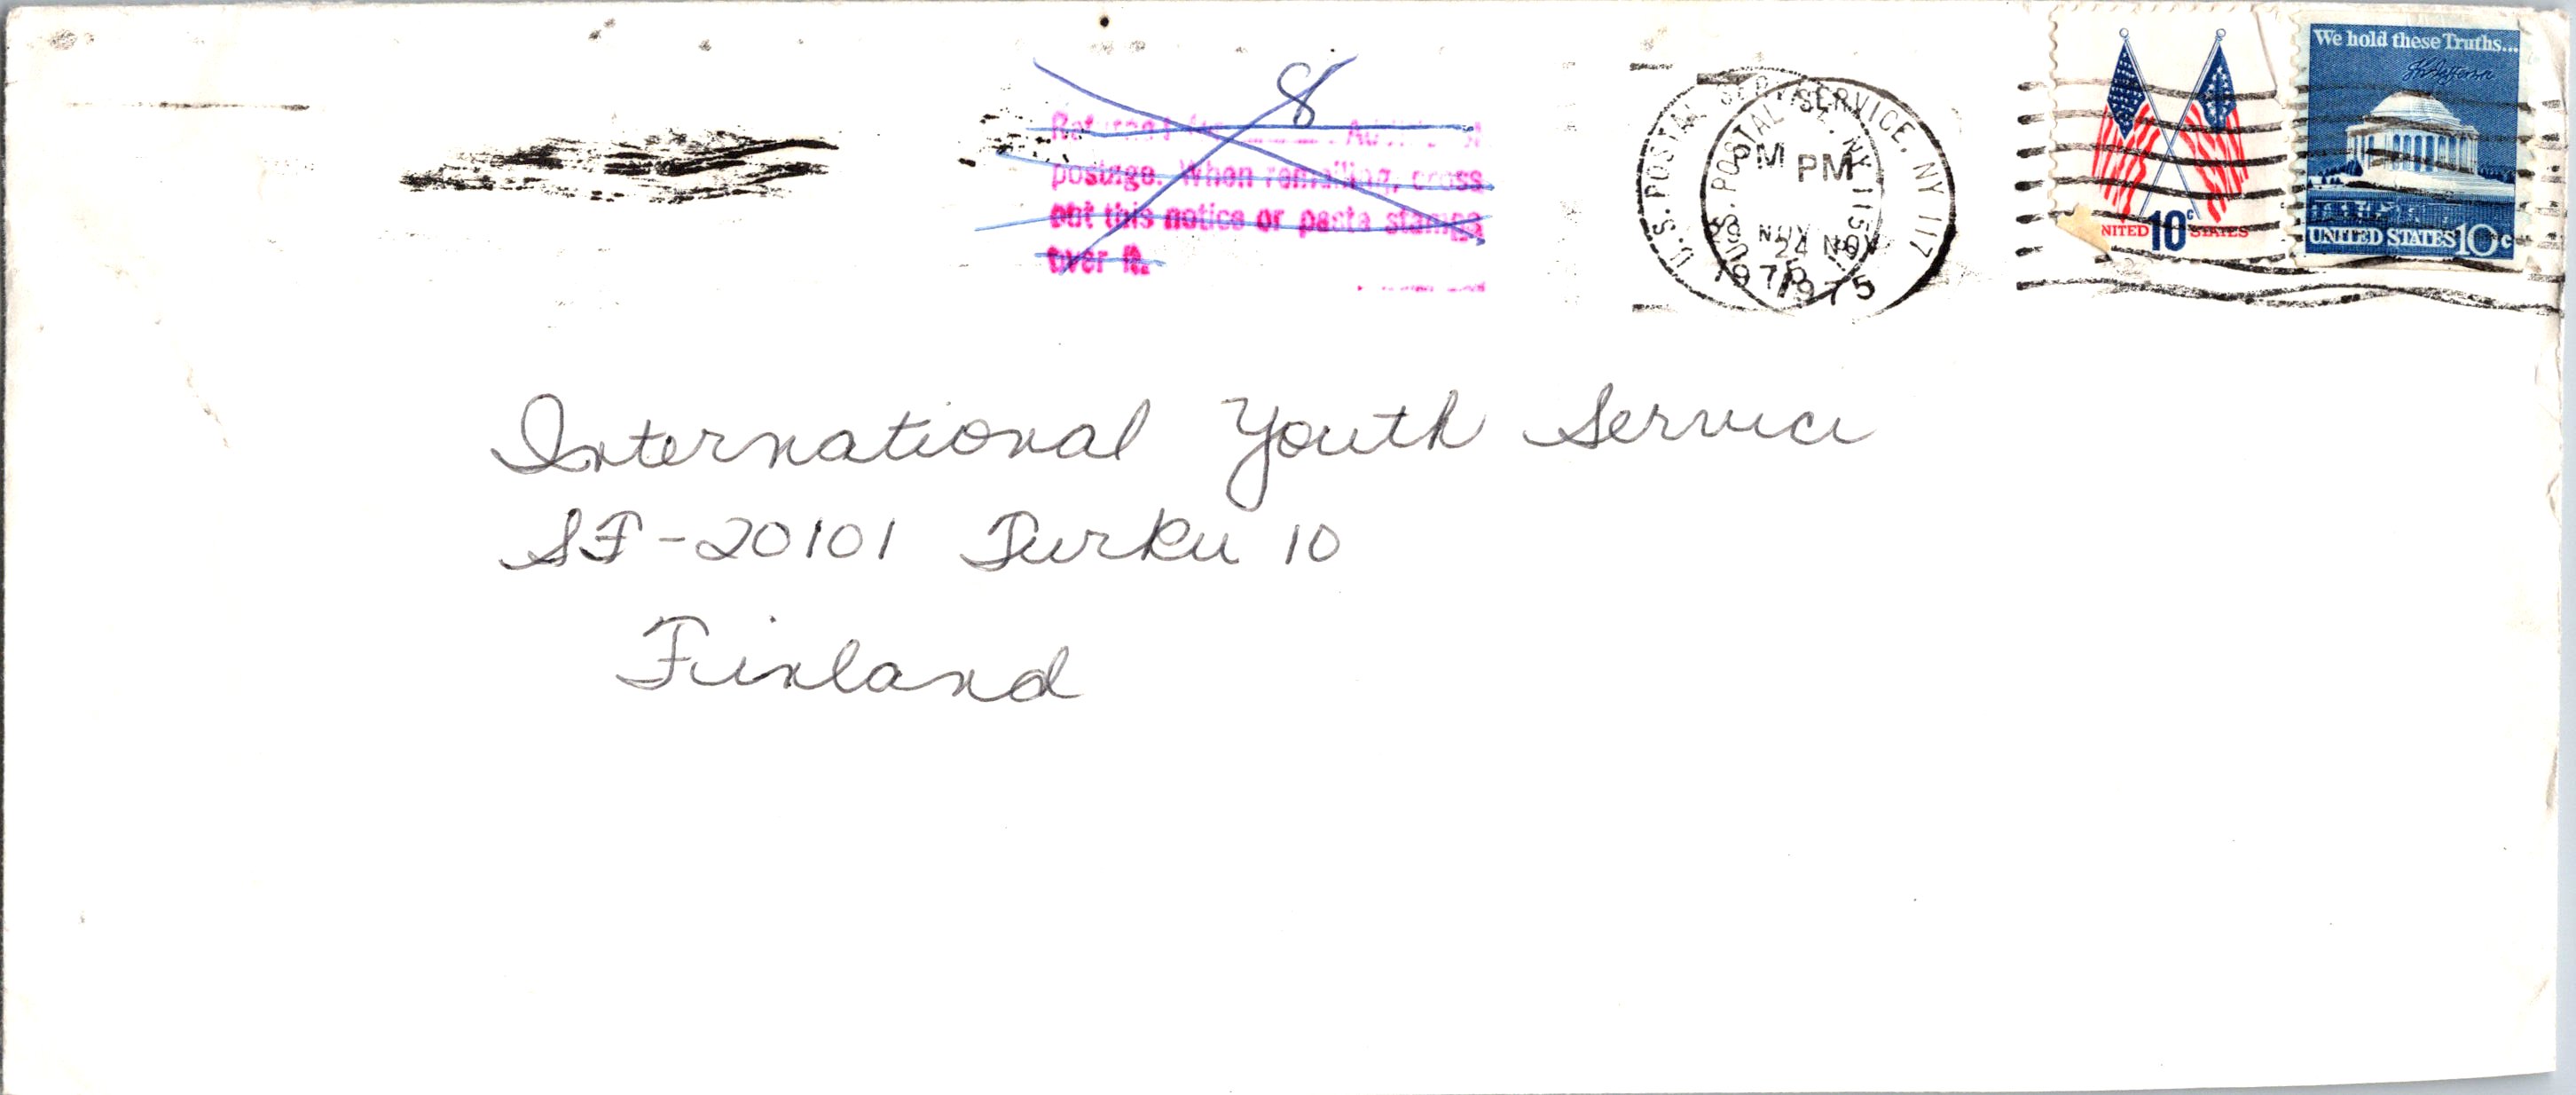 8
Returned for Additional
postage. When remailing, cross
out this notice or paste stamps
over it.
U.S. POSTAL SERVICE, NY 117
U.S. POSTAL SERVICE, NY 115
PM PM
NOV
24 NOV
1975 1975
NITED 10c STATES
We hold these Truths...
Th Jefferson
UNITED STATES 10c
International Youth Service
SF-20101 Turku 10
Finland